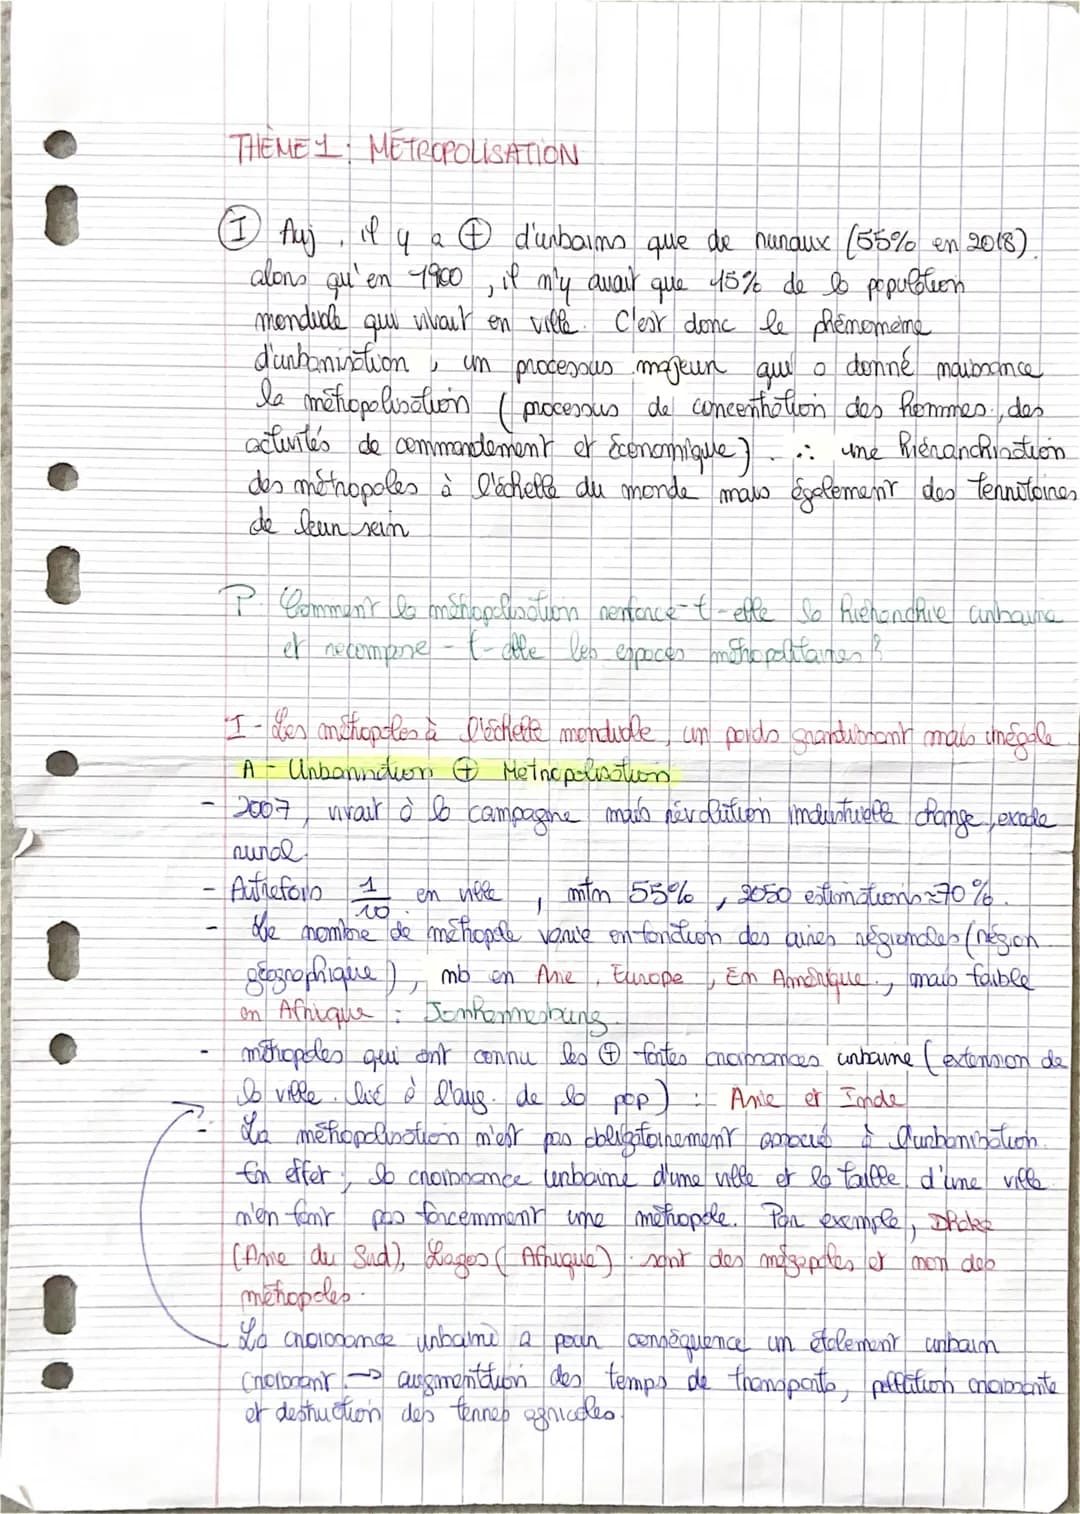 THÈME 1 : MÉTROPOLISATION
I Auj, il y a + d'urbains que de ruraux (55% en 2018)
alors qu'en 1900, il n'y avait que 15% de la population
mondiale qui vivait en ville. C'est donc le phénomène
d'urbanisation, un processus majeur qui a donné naissance
la métropolisation (processus de concentration des hommes, des
activités de commandement et économique). ∴ une hiérarchisation
des métropoles à l'échelle du monde mais également des territoires
de leur sein
P. Comment la métropolisation renforce-t-elle la hiérarchie urbaine
et recompose-t-elle les espaces métropolitaines ?
I - Les métropoles à l'échelle mondiale, un poids grandissant mais inégale
A - Urbanisation + Métropolisation
- 2007, vivait à la campagne mais révolution industrielle change, exode
rural.
- Autrefois 1/10 en ville, mtn 55%, 2050 estimations ≈70%.
- Le nombre de métropole varie en fonction des aires régionales (région
géographique), nb en Asie, Europe, En Amérique., mais faible
en Afrique : Johannesburg.
- métropoles qui ont connu les + fortes croissances urbaine (extension de
la ville lié à l'aug. de la pop) : Asie et Inde
- La métropolisation n'est pas obligatoirement associé à l'urbanisation.
En effet, la croissance urbaine d'une ville et la taille d'une ville
n'en font pas forcemment une métropole. Par exemple, Dhaka
(Asie du Sud), Lagos (Afrique) sont des mégapoles et non des
métropoles.
La croissance urbaine a pour conséquence un étalement urbain
croissant → augmentation des temps de transports, pollution croissante
et destruction des terres agricoles.